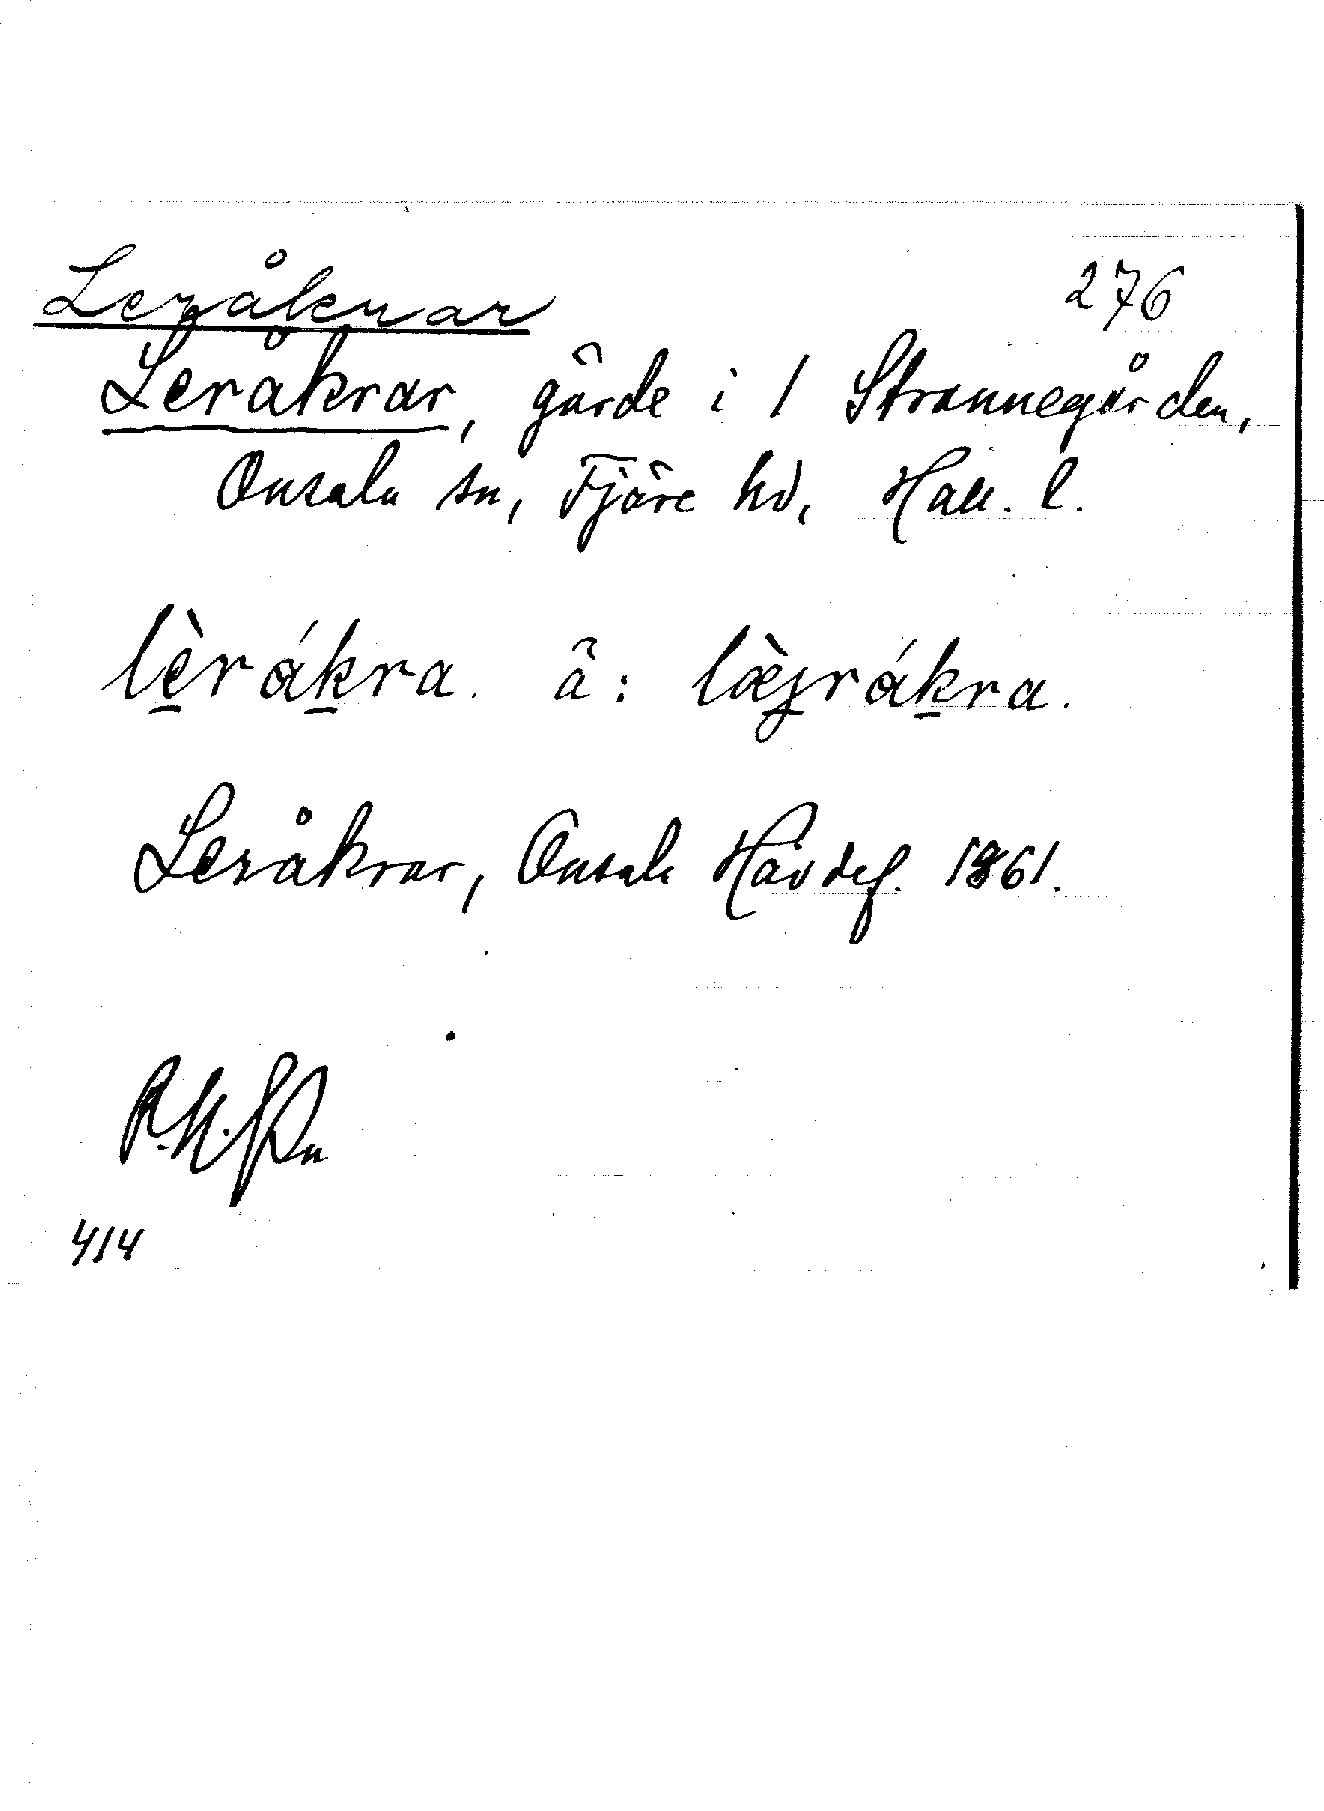 Leråkrar 276
Leråkrar, gärde i 1 Strannegården,
Onsala sn, Fjäre hd, Hall. l.
lèrákra. ä: læ̀jrákra.
Leråkrar, Onsala Hävdef. 1861.
414